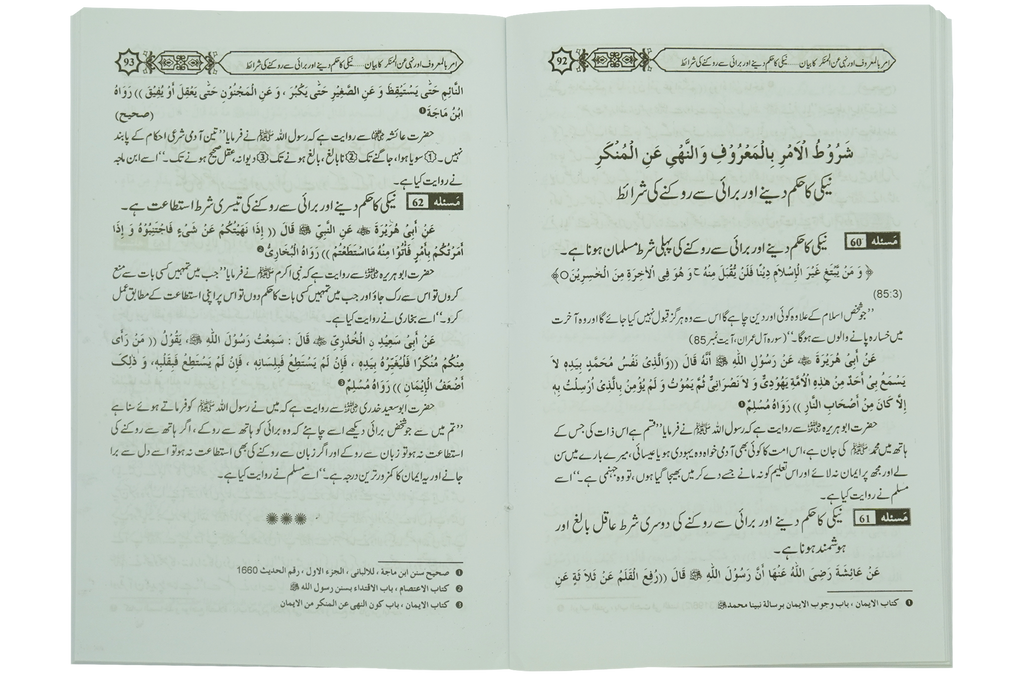 امر بالمعروف اور نہی عن المنکر کا بیان.....نیکی کا حکم دینے اور برائی سے روکنے کی شرائط
92
شَرُوْطُ الْاَمْرِ بِالْمَعْرُوْفِ وَالنَّهْىِ عَنِ الْمُنْكَرِ
نیکی کا حکم دینے اور برائی سے روکنے کی شرائط
مَسئله 60 نیکی کا حکم دینے اور برائی سے روکنے کی پہلی شرط مسلمان ہونا ہے۔
﴿ وَ مَنْ يَّبْتَغِ غَيْرَ الْاِسْلاَمِ دِيْنًا فَلَنْ يُّقْبَلَ مِنْهُ ج وَ هُوَ فِى الْاٰخِرَةِ مِنَ الْخٰسِرِيْنَ○﴾
(85:3)
”جو شخص اسلام کے علاوہ کوئی اور دین چاہے گا اس سے وہ ہرگز قبول نہیں کیا جائے گا اور وہ آخرت
میں خسارہ پانے والوں سے ہوگا۔“ (سورہ آل عمران، آیت نمبر 85)
عَنْ أَبِىْ هُرَيْرَةَ ؓ عَنْ رَسُوْلِ اللّٰهِ ﷺ أَنَّهُ قَالَ ((وَالَّذِىْ نَفْسُ مُحَمَّدٍ بِيَدِهِ لاَ
يَسْمَعُ بِىْ أَحَدٌ مِنْ هٰذِهِ الْأُمَّةِ يَهُوْدِىٌّ وَ لاَ نَصْرَانِىٌّ ثُمَّ يَمُوْتُ وَ لَمْ يُؤْمِنْ بِالَّذِىْ اُرْسِلْتُ بِهِ
إِلاَّ كَانَ مِنْ أَصْحَابِ النَّارِ )) رَوَاهُ مُسْلِمٌ❶
حضرت ابو ہریرہ ؓ سے روایت ہے کہ رسول اللہ ﷺ نے فرمایا ”قسم ہے اس ذات کی جس کے
ہاتھ میں محمد ﷺ کی جان ہے، اس امت کا کوئی بھی آدمی خواہ وہ یہودی ہو یا عیسائی، میرے بارے میں سن
لے اور مجھ پر ایمان نہ لائے اور اس تعلیم کو نہ مانے جسے دے کر میں بھیجا گیا ہوں، تو وہ جہنمی ہے۔“ اسے
مسلم نے روایت کیا ہے۔
مَسئله 61 نیکی کا حکم دینے اور برائی سے روکنے کی دوسری شرط عاقل بالغ اور
ہوشمند ہونا ہے۔
عَنْ عَائِشَةَ رَضِىَ اللّٰهُ عَنْهَا أَنَّ رَسُوْلَ اللّٰهِ ﷺ قَالَ ((رُفِعَ الْقَلَمُ عَنْ ثَلاَ ثَةٍ عَنِ
❶ كتاب الايمان ، باب وجوب الايمان برسالة نبينا محمد ﷺ
امر بالمعروف اور نہی عن المنکر کا بیان.....نیکی کا حکم دینے اور برائی سے روکنے کی شرائط
93
النَّائِمِ حَتّٰى يَسْتَيْقِظَ وَ عَنِ الصَّغِيْرِ حَتّٰى يَكْبُرَ ، وَ عَنِ الْمَجْنُوْنِ حَتّٰى يَعْقِلَ أَوْ يُفِيْقَ )) رَوَاهُ
ابْنُ مَاجَةَ❶ (صحيح)
حضرت عائشہ ؓ سے روایت ہے کہ رسول اللہ ﷺ نے فرمایا ”تین آدمی شرعی احکام کے پابند
نہیں۔ ① سویا ہوا، جاگنے تک ② نابالغ، بالغ ہونے تک ③ دیوانہ، عقل صحیح ہونے تک۔“ اسے ابن ماجہ
نے روایت کیا ہے۔
مَسئله 62 نیکی کا حکم دینے اور برائی سے روکنے کی تیسری شرط استطاعت ہے۔
عَنْ أَبِىْ هُرَيْرَةَ ؓ عَنِ النَّبِىِّ ﷺ قَالَ (( إِذَا نَهَيْتُكُمْ عَنْ شَىْءٍ فَاجْتَنِبُوْهُ وَ إِذَا
أَمَرْتُكُمْ بِأَمْرٍ فَأْتُوْا مِنْهُ مَااسْتَطَعْتُمْ )) رَوَاهُ الْبُخَارِىُّ❷
حضرت ابو ہریرہ ؓ سے روایت ہے کہ نبی اکرم ﷺ نے فرمایا ”جب میں تمہیں کسی بات سے منع
کروں تو اس سے رک جاؤ اور جب میں تمہیں کسی بات کا حکم دوں تو اس پر اپنی استطاعت کے مطابق عمل
کرو۔“ اسے بخاری نے روایت کیا ہے۔
عَنْ أَبِىْ سَعِيْدٍ نِ الْخُدْرِىِّ ؓ قَالَ : سَمِعْتُ رَسُوْلَ اللّٰهِ ﷺ، يَقُوْلُ (( مَنْ رَأَى
مِنْكُمْ مُنْكَرًا فَلْيُغَيِّرْهُ بِيَدِهِ ، فَإِنْ لَمْ يَسْتَطِعْ فَبِلِسَانِهِ ، فَإِنْ لَمْ يَسْتَطِعْ فَبِقَلْبِهِ، وَ ذٰلِكَ
أَضْعَفُ الْإِيْمَانِ )) رَوَاهُ مُسْلِمٌ❸
حضرت ابو سعید خدری ؓ سے روایت ہے کہ میں نے رسول اللہ ﷺ کو فرماتے ہوئے سنا ہے
”تم میں سے جو شخص برائی دیکھے اسے چاہئے کہ وہ برائی کو ہاتھ سے روکے، اگر ہاتھ سے روکنے کی
استطاعت نہ ہو تو زبان سے روکے اور اگر زبان سے روکنے کی بھی استطاعت نہ ہو تو اسے دل سے برا
جانے اور یہ ایمان کا کمزور ترین درجہ ہے۔“ اسے مسلم نے روایت کیا ہے۔
❶ صحيح سنن ابن ماجة ، للالبانى ، الجزء الاول ، رقم الحديث 1660
❷ كتاب الاعتصام ، باب الاقتداء بسنن رسول الله ﷺ
❸ كتاب الايمان ، باب كون النهى عن المنكر من الايمان